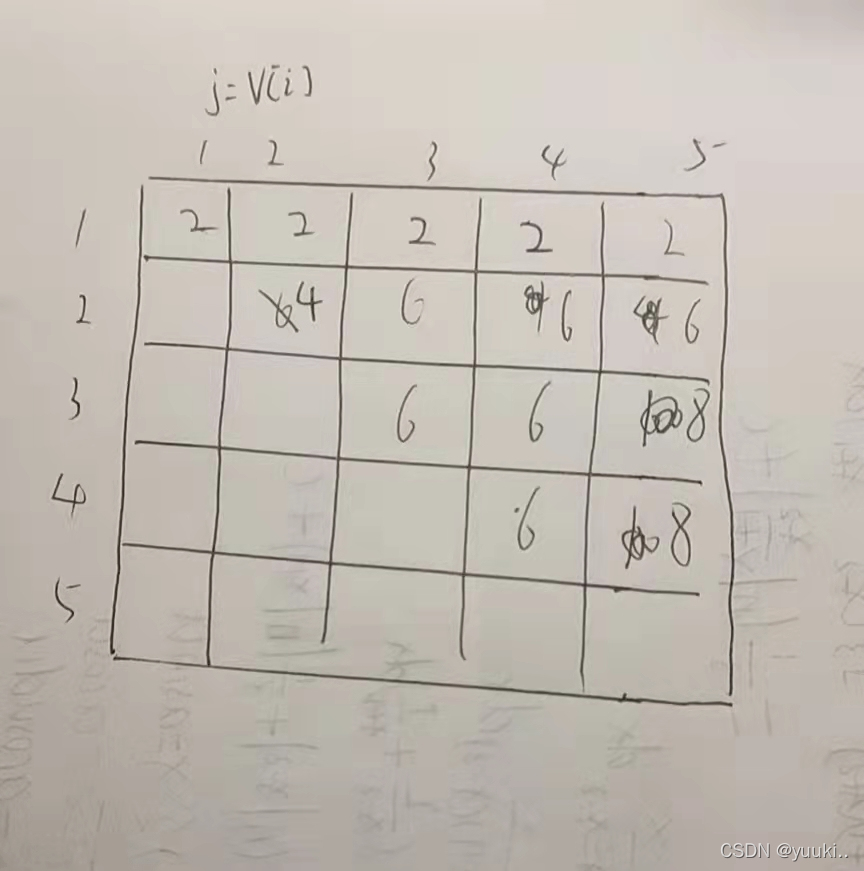 j=V[i]
1 2 3 4 5
1 2 2 2 2 2
2 4 6 6 6
3 6 6 8
4 6 8
5
CSDN @yuuki..